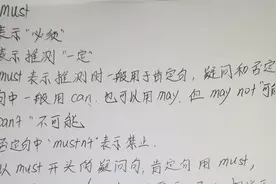 must
表示"必须"
表示推测"一定"
must 表示推测时一般用于肯定句,疑问和否定
句中一般用can.也可以用may.但 may not "可能
can't" 不可能.
否定句中"mustn't"表示禁止.
以must开头的疑问句,肯定句用must,